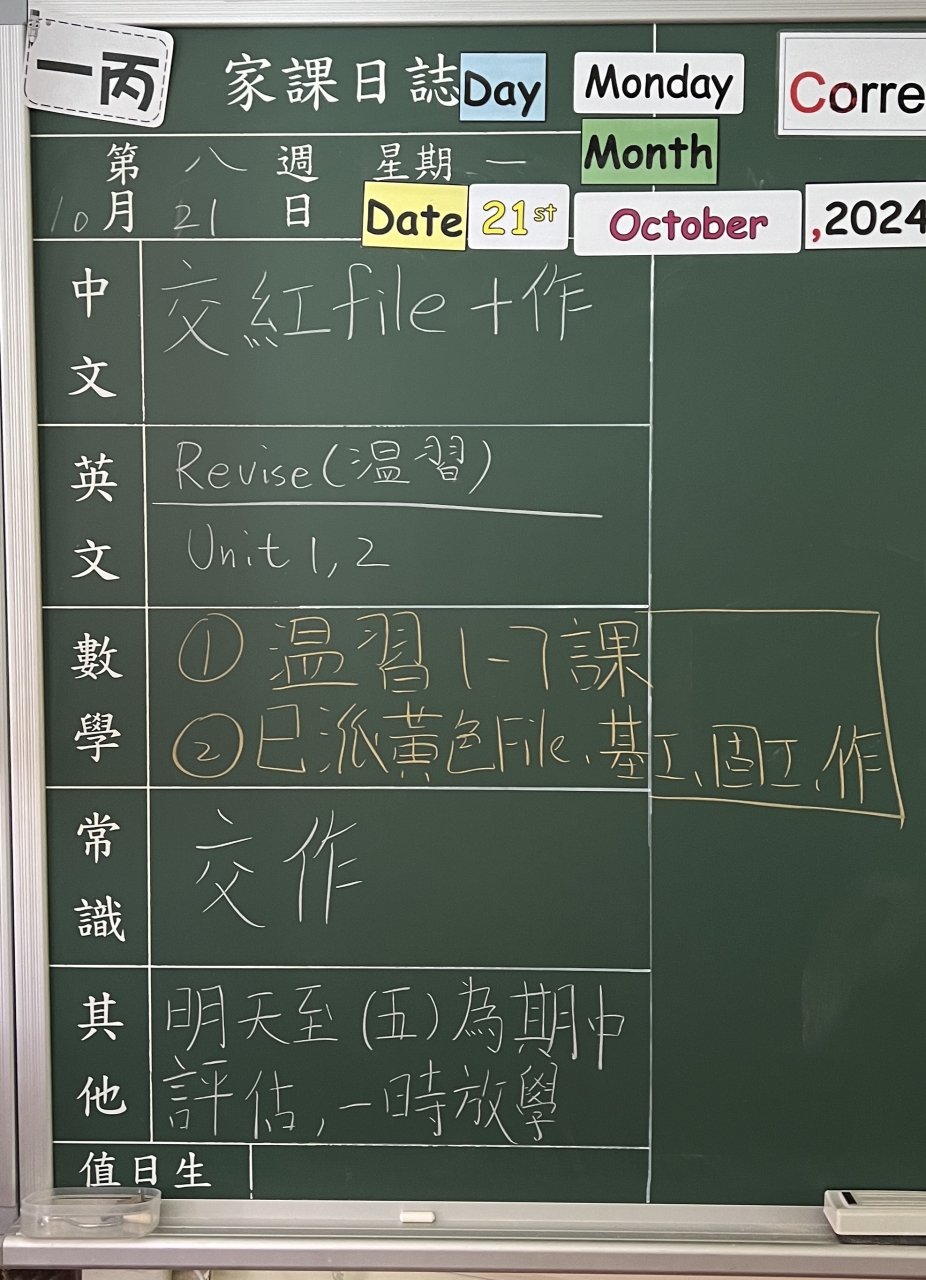 一丙
家課日誌 Day Monday Corre
Month
第 八 週 星期 一
10月 21 日 Date 21st October ,2024
中文
交紅file+作
英文
Revise(温習)
Unit 1,2
數學
① 温習1-7課
② 已派黃色File、基工、固工、作
常識
交作
其他
明天至(五)為期中
評估,一時放學
值日生